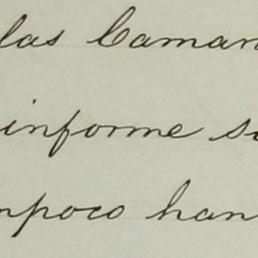 las Caman
informe su
mpoco han